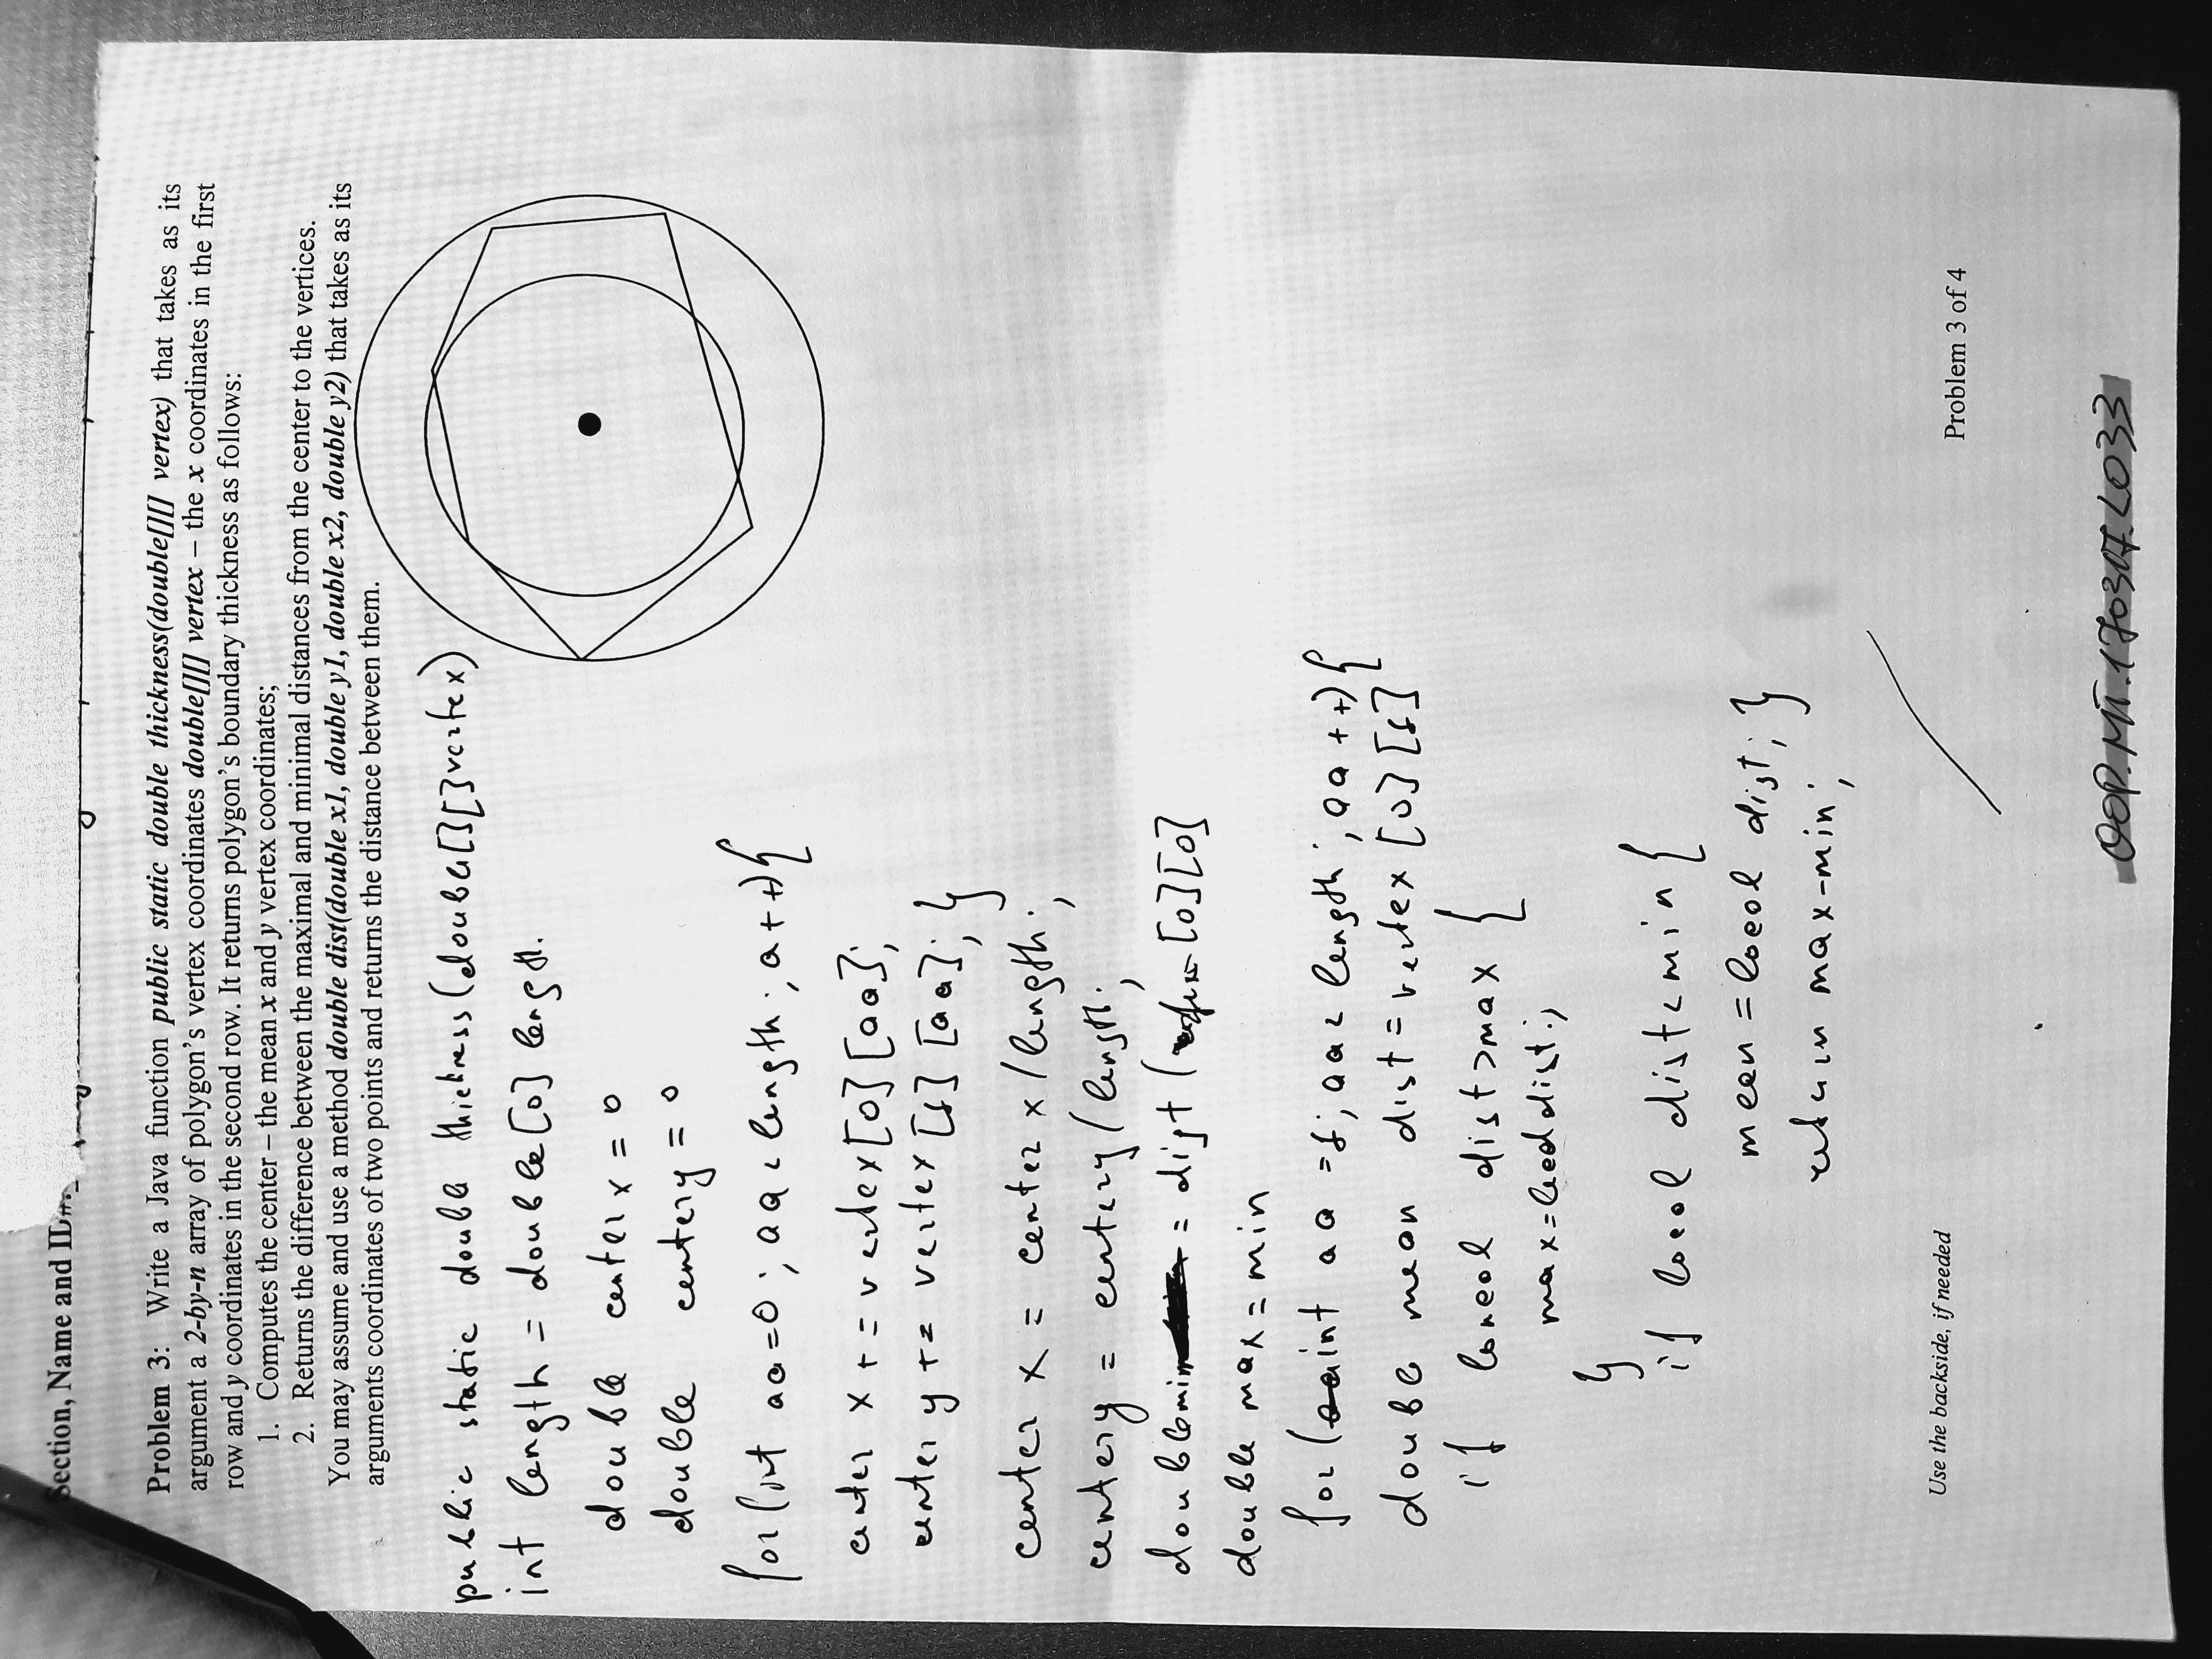 Section, Name and ID#:
Problem 3: Write a Java function public static double thickness(double[][] vertex) that takes as its
argument a 2-by-n array of polygon's vertex coordinates double[][] vertex – the x coordinates in the first
row and y coordinates in the second row. It returns polygon's boundary thickness as follows:
1. Computes the center – the mean x and y vertex coordinates;
2. Returns the difference between the maximal and minimal distances from the center to the vertices.
You may assume and use a method double dist(double x1, double y1, double x2, double y2) that takes as its
arguments coordinates of two points and returns the distance between them.
public static double thickness(double[][]vertex)
int length = double[0] length.
double center x = 0
double centery = 0
for(int aa=0; aa < length; a++){
center x += vertex[0][aa];
center y += vertex[1][aa]; }
center x = center x / length;
centery = centery / length;
double min = dist ( [0][0]
double max = min
for (int aa =1; aa < length; aa ++){
double mean dist = vertex [0][1]
if loneal dist > max {
max = local dist;
}
if local dist < min {
mean = local dist; }
return max-min;
Use the backside, if needed
Problem 3 of 4
OOP.MT.170317.L033